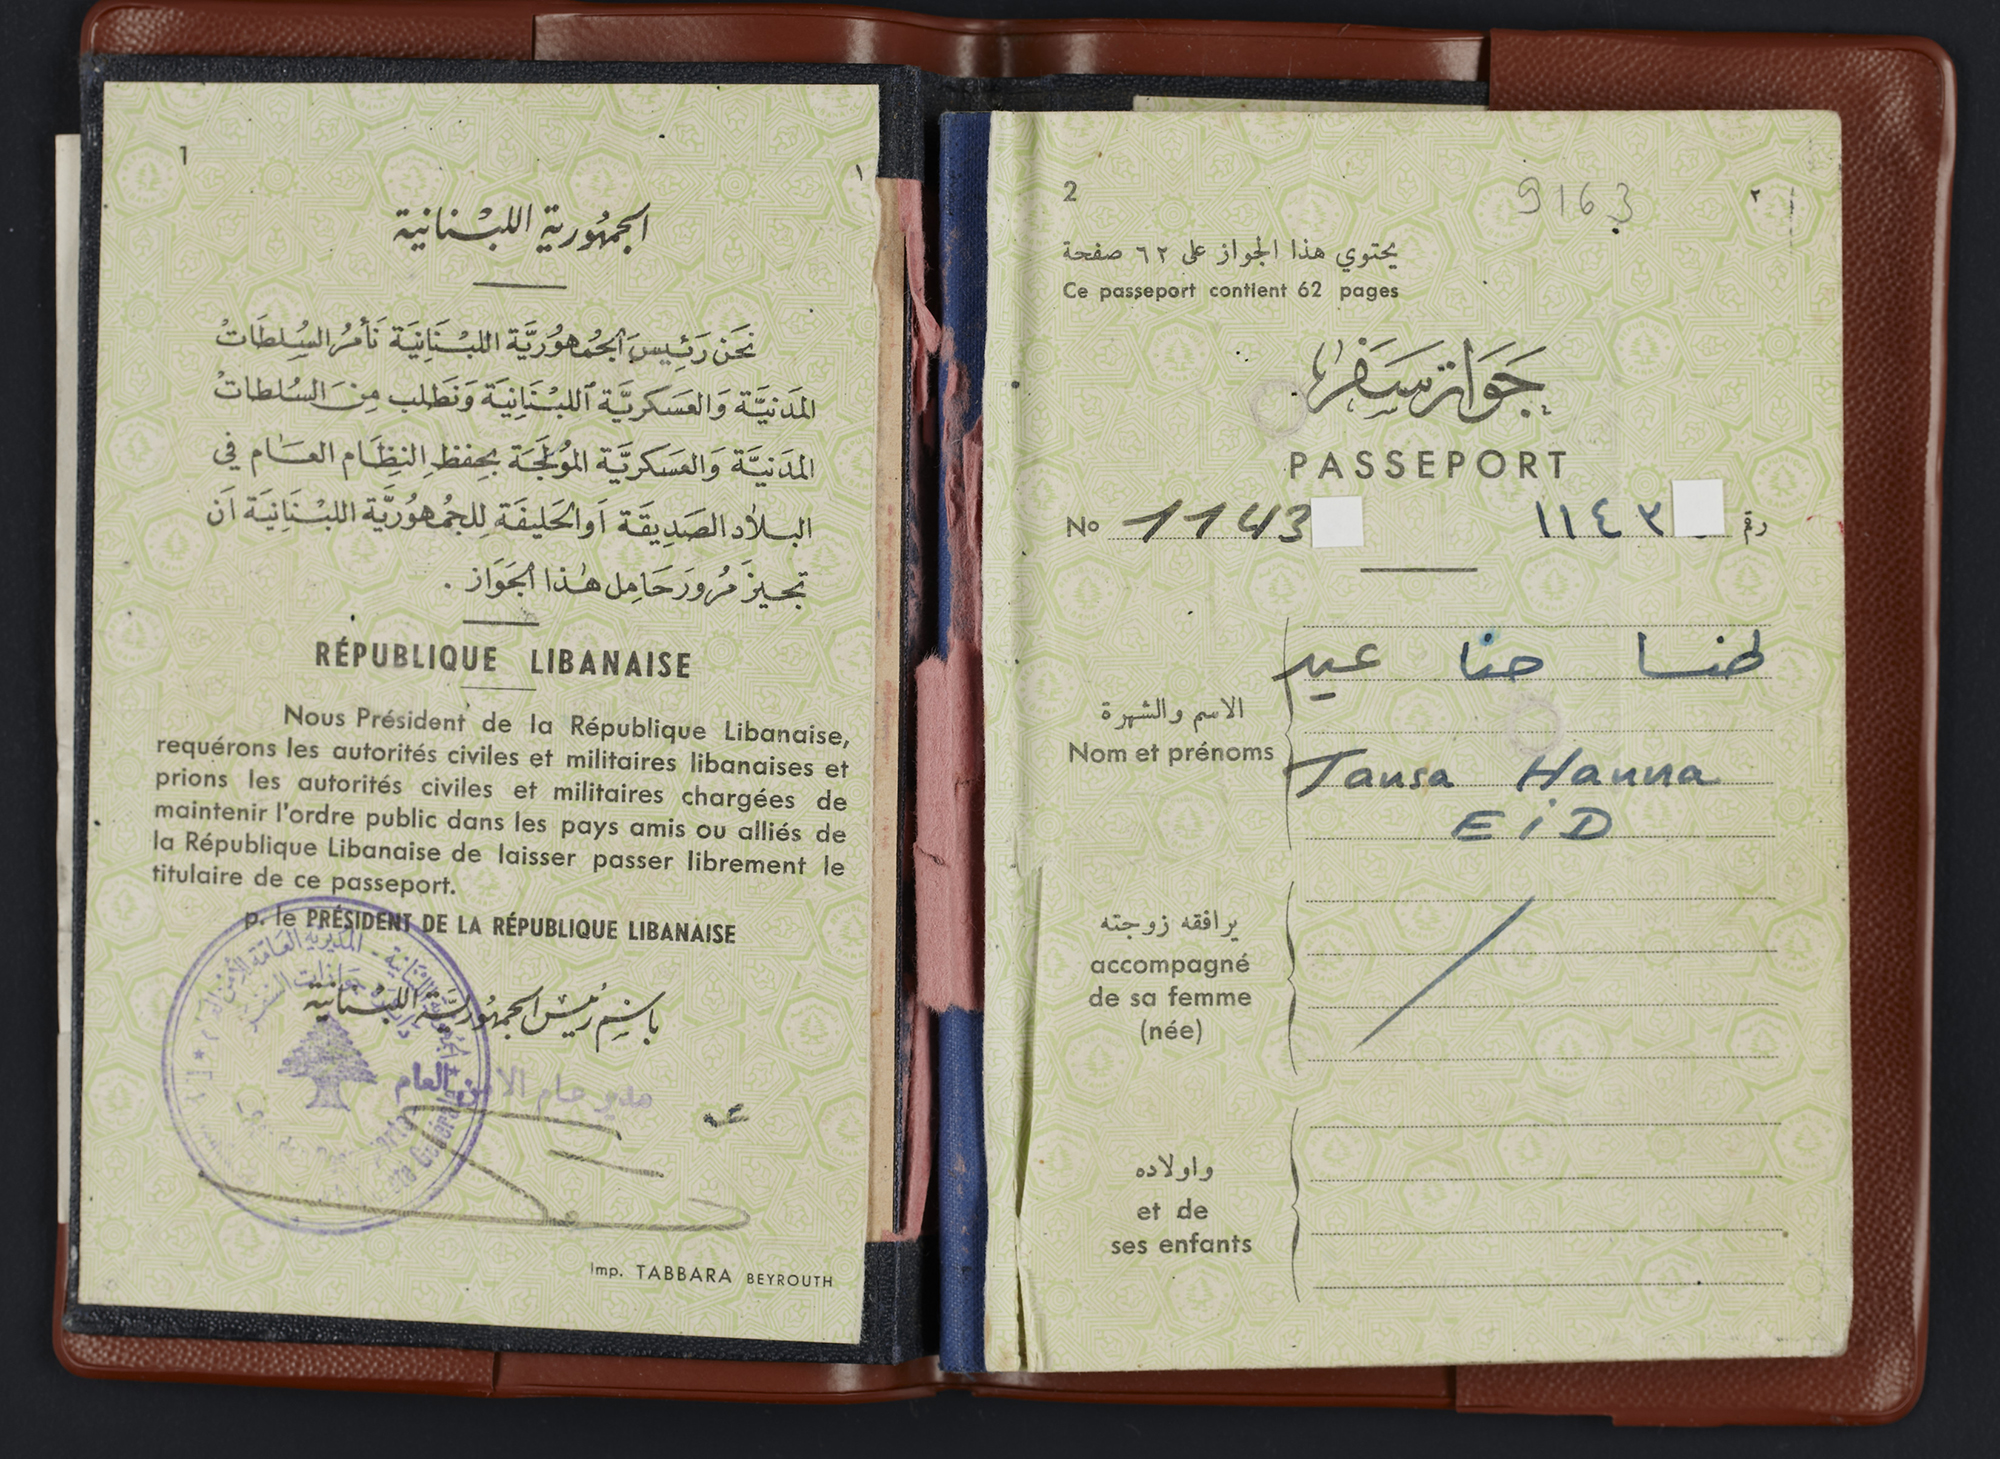 1
١
الجمهورية اللبنانية
نَحَن رَئِيسَ الجُمهوُريَّة اللبْنَانِيَة نَأمُر السُلطَات
المَدَنيَّة وَالعَسكريَّة اللبْنَانِيَة وَنَطلب مِنَ السُلطات
المَدَنيَّة وَالعَسكريَّة المُولَجَة بحِفظِ النِظَام العَام في
البلاد الصَدِيقَة أو الحَليفَة لِلجُمهوُريَّة اللبْنَانِيَة أن
تجيز مُرور حَامِل هٰذا الجَوَاز .
RÉPUBLIQUE LIBANAISE
Nous Président de la République Libanaise,
requérons les autorités civiles et militaires libanaises et
prions les autorités civiles et militaires chargées de
maintenir l'ordre public dans les pays amis ou alliés de
la République Libanaise de laisser passer librement le
titulaire de ce passeport.
p. le PRÉSIDENT DE LA RÉPUBLIQUE LIBANAISE
باسم رئيس الجمهورية اللبنانية
مدير عام الامن العام
Imp. TABBARA BEYROUTH
2
9163
٢
يحتوي هذا الجواز على ٦٢ صفحة
Ce passeport contient 62 pages
جَوَاز سَفَر
PASSEPORT
No 1143
١١٤٣ رقم
طنسا حنا عيد
الاسم والشهرة
Nom et prénoms
Tansa Hanna
EiD
يرافقه زوجته
accompagné
de sa femme
(née)
واولاده
et de
ses enfants